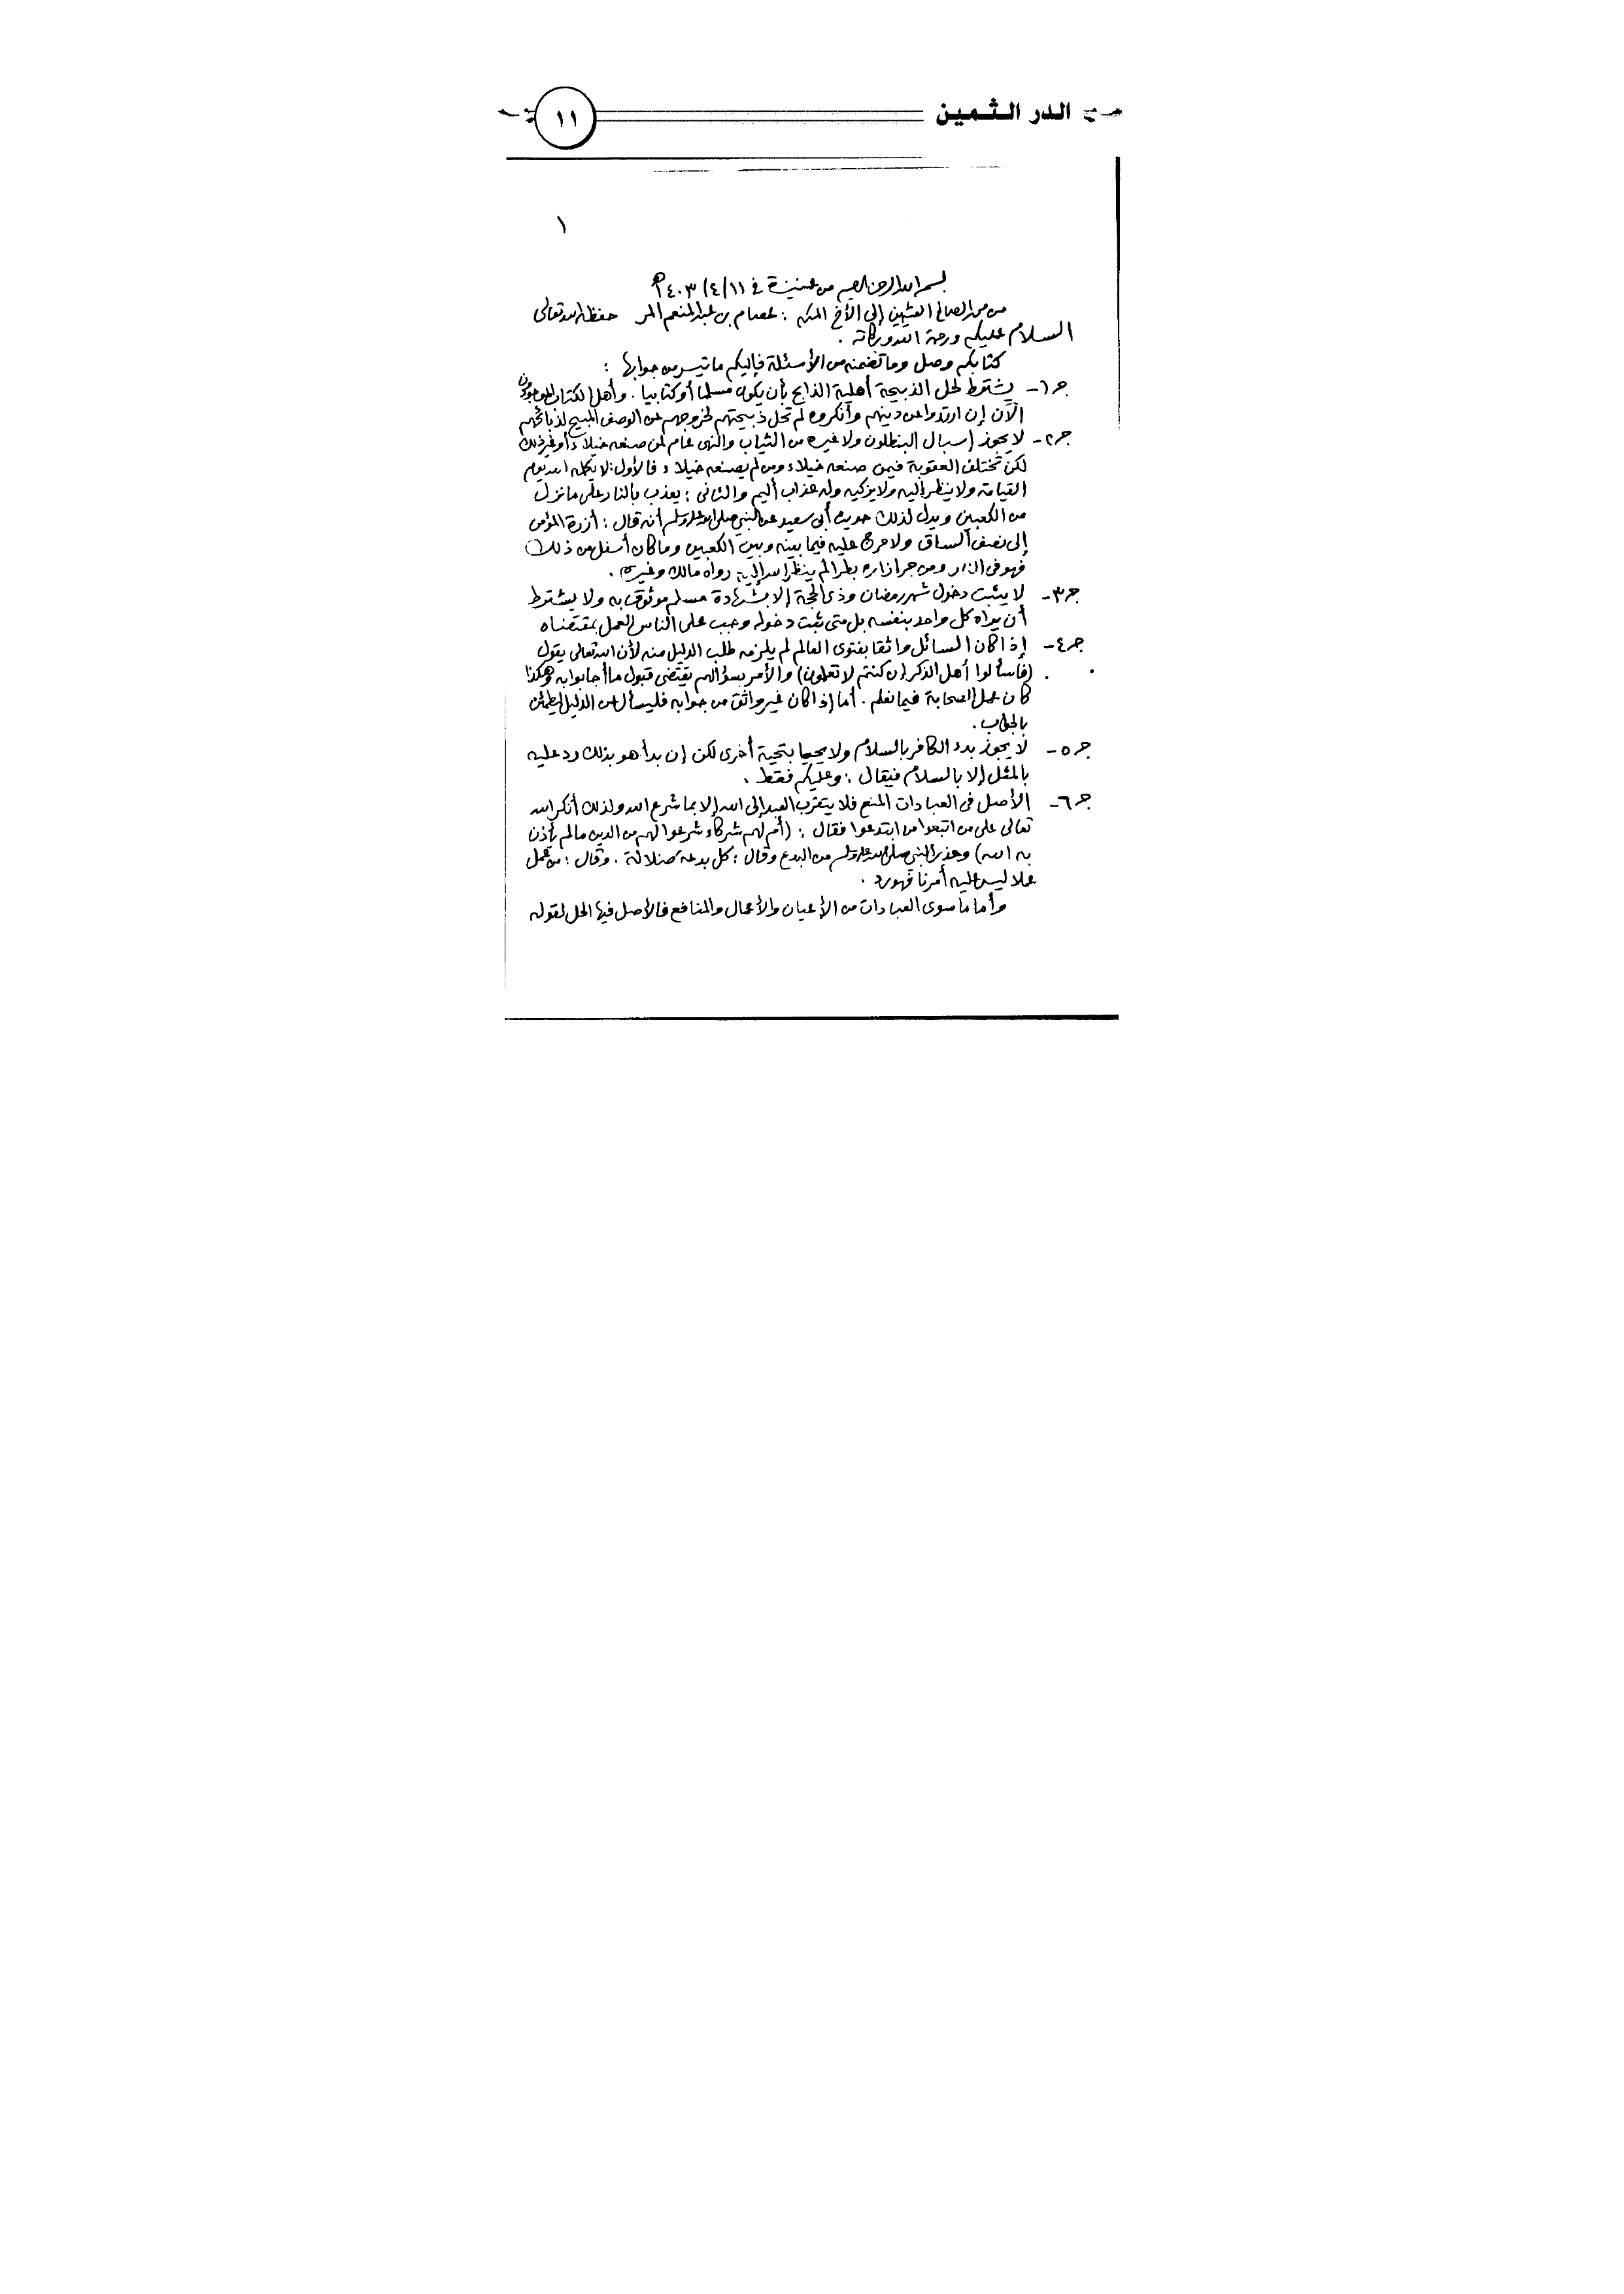 الدر الثمين
١١
١
بسم الله الرحمن الرحيم من عنيزة في ١١/٤/١٤٠٣هـ
من محمد الصالح العثيمين إلى الأخ المكرم : عصام بن عبد المنعم المر حفظه الله تعالى
السلام عليكم ورحمة الله وبركاته .
كتابكم وصل وما تضمنه من الأسئلة فإليكم ما تيسر من جوابها :
جـ١- يشترط لحل الذبيحة أهلية الذابح بأن يكون مسلما أو كتابيا . وأهل الكتاب الموجودون
الآن إن ارتدوا عن دينهم وأنكروه لم تحل ذبيحتهم لخروجهم عن الوصف المبيح لذبائحهم
جـ٢- لا يجوز إسبال البنطلون ولا غيره من الثياب والنهي عام لمن صنعه خيلاء أو غير ذلك
لكن تختلف العقوبة فيمن صنعه خيلاء ومن لم يصنعه خيلاء فالأول : لا يكلمه الله يوم
القيامة ولا ينظر إليه ولا يزكيه وله عذاب أليم والثاني : يعذب بالنار على ما نزل
من الكعبين ويدل لذلك حديث أبي سعيد عن النبي صلى الله عليه وسلم أنه قال : أزرة المؤمن
إلى نصف الساق ولا حرج عليه فيما بينه وبين الكعبين وما كان أسفل من ذلك
فهو في النار ومن جر إزاره بطرا لم ينظر الله إليه رواه مالك وغيره .
جـ٣- لا يثبت دخول شهر رمضان وذي الحجة إلا بشهادة مسلم موثوق به ولا يشترط
أن يراه كل واحد بنفسه بل متى ثبت دخوله وجب على الناس العمل بمقتضاه
جـ٤- إذا كان السائل واثقا بفتوى العالم لم يلزمه طلب الدليل منه لأن الله تعالى يقول
(فاسألوا أهل الذكر إن كنتم لا تعلمون) والأمر بسؤالهم يقتضي قبول ما أجابوا به وهكذا
كان عمل الصحابة فيما نعلم . أما إذا كان غير واثق من جوابه فليسأل عن الدليل ليطمئن
بالجواب .
جـ٥- لا يجوز بدء الكافر بالسلام ولا يحييا بتحية أخرى لكن إن بدأ هو بذلك رد عليه
بالمثل إلا بالسلام فيقال : وعليكم فقط .
جـ٦- الأصل في العبادات المنع فلا يتقرب العبد إلى الله إلا بما شرع الله ولذلك أنكر الله
تعالى على من اتبعوا من ابتدعوا فقال : (أم لهم شركاء شرعوا لهم من الدين ما لم يأذن
به الله) وحذر النبي صلى الله عليه وسلم من البدع وقال : كل بدعة ضلالة . وقال : من عمل
عملا ليس عليه أمرنا فهو رد .
وأما ما سوى العبادات من الأعيان والأعمال والمنافع فالأصل فيها الحل لقوله